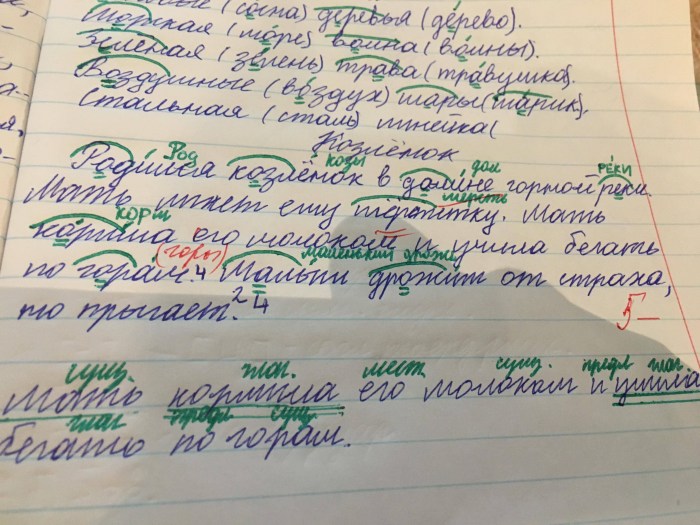 (сосна) деревья (дерево).
Морская (море) волна (волны).
Зелёная (зелень) трава (травушка).
Воздушные (воздух) шары (шарик).
Стальная (сталь) линейка (
Козлёнок
Род козы дол мереть РЕКИ
Родился козлёнок в долине горной реки.
Мать лижет ему шёрстку. Мать
корм
кормила его молоком и учила бегать
(горы) маленький дрожь
по горам.4 Малыш дрожит от страха,
то прыгает.2 4
5-
сущ. глаг. мест. сущ. предл глаг.
Мать кормила его молоком и учила
глаг предл сущ.
бегать по горам.